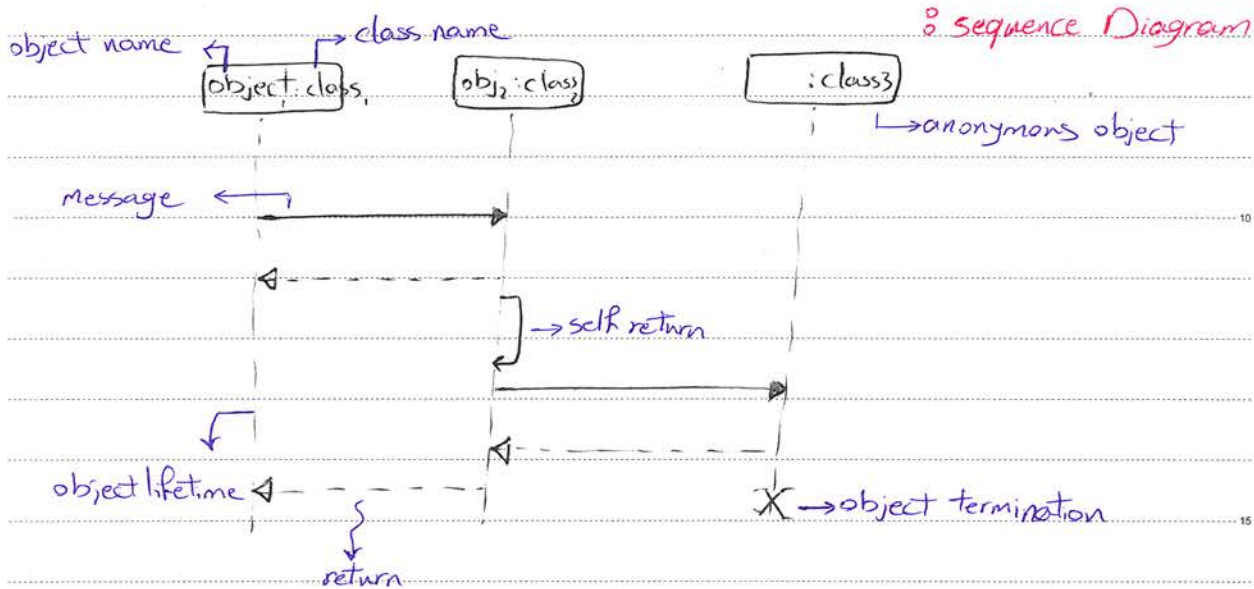 : sequence Diagram
object name
class name
object1:class1
obj2:class2
:class3
anonymons object
message
10
self return
object lifetime
object termination
15
return